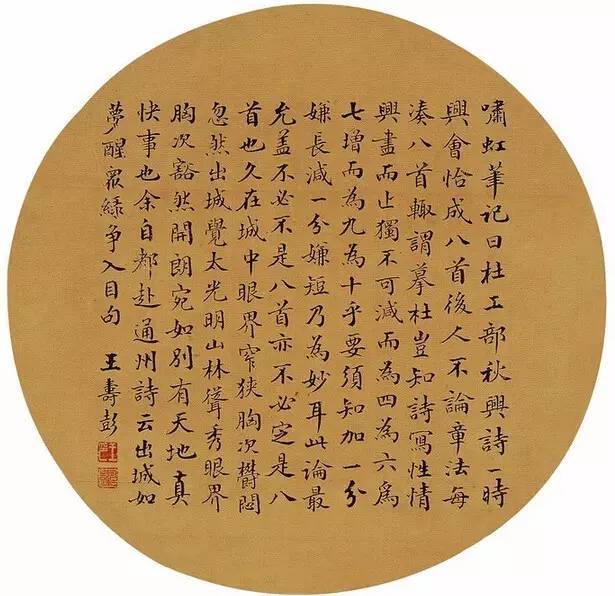 嘯虹筆記曰杜工部秋興詩一時
興會恰成八首後人不論章法每
湊八首輙謂摹杜豈知詩寫性情
興盡而止獨不可減而為四為六爲
七增而為九為十乎要須知加一分
嫌長減一分嫌短乃為妙耳此論最
允盖不必不是八首亦不必定是八
首也久在城中眼界窄狹胸次鬱悶
忽然出城覺太光明山林聳秀眼界
胸次豁然開朗宛如別有天地真
快事也余自都赴通州詩云出城如
夢醒眾緑争入目句
王壽彭